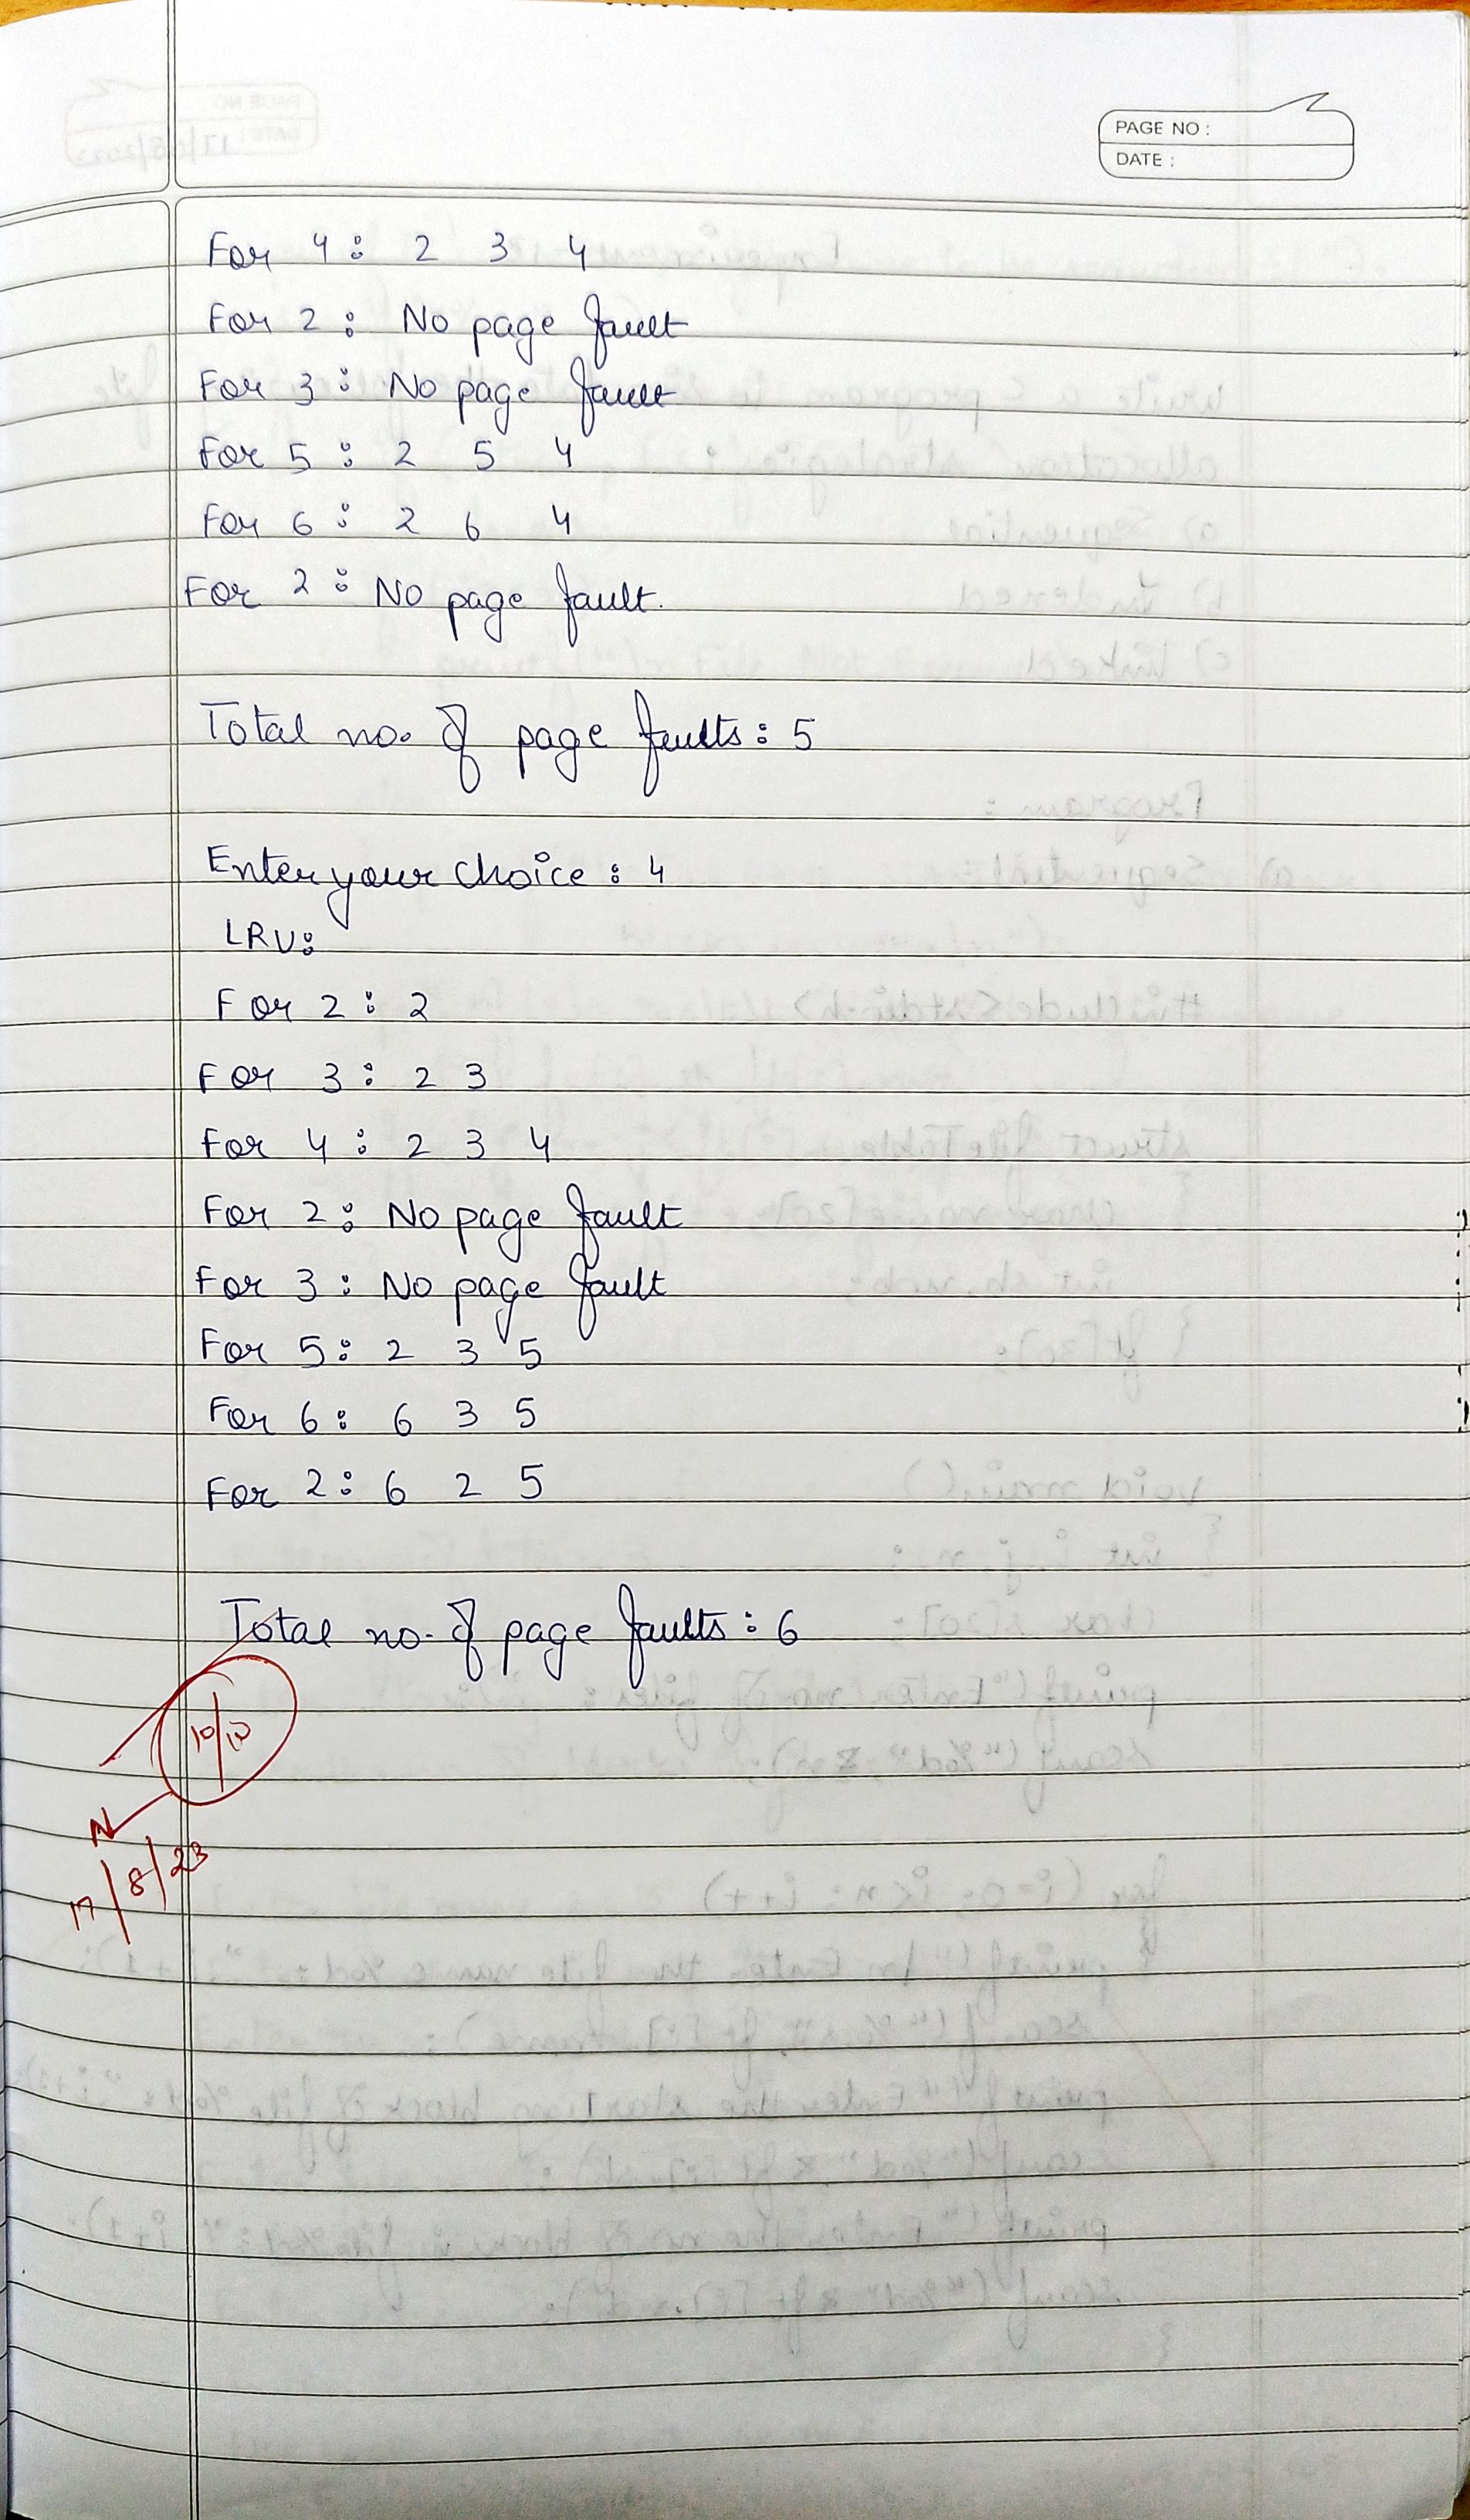 PAGE NO :
DATE :
For 4 : 2 3 4
For 2 : No page fault
For 3 : No page fault
For 5 : 2 5 4
For 6 : 2 6 4
For 2 : No page fault.
Total no. of page faults : 5
Enter your choice : 4
LRU:
For 2 : 2
For 3 : 2 3
For 4 : 2 3 4
For 2 : No page fault
For 3 : No page fault
For 5 : 2 3 5
For 6 : 6 3 5
For 2 : 6 2 5
Total no. of page faults : 6
10/10
N
17/8/23